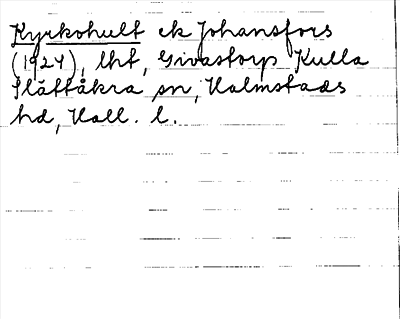 Kyrkohult ek Johansfors
(1924), lht, Givastorp Kulla
Slättåkra sn, Halmstads
hd, Hall. l.